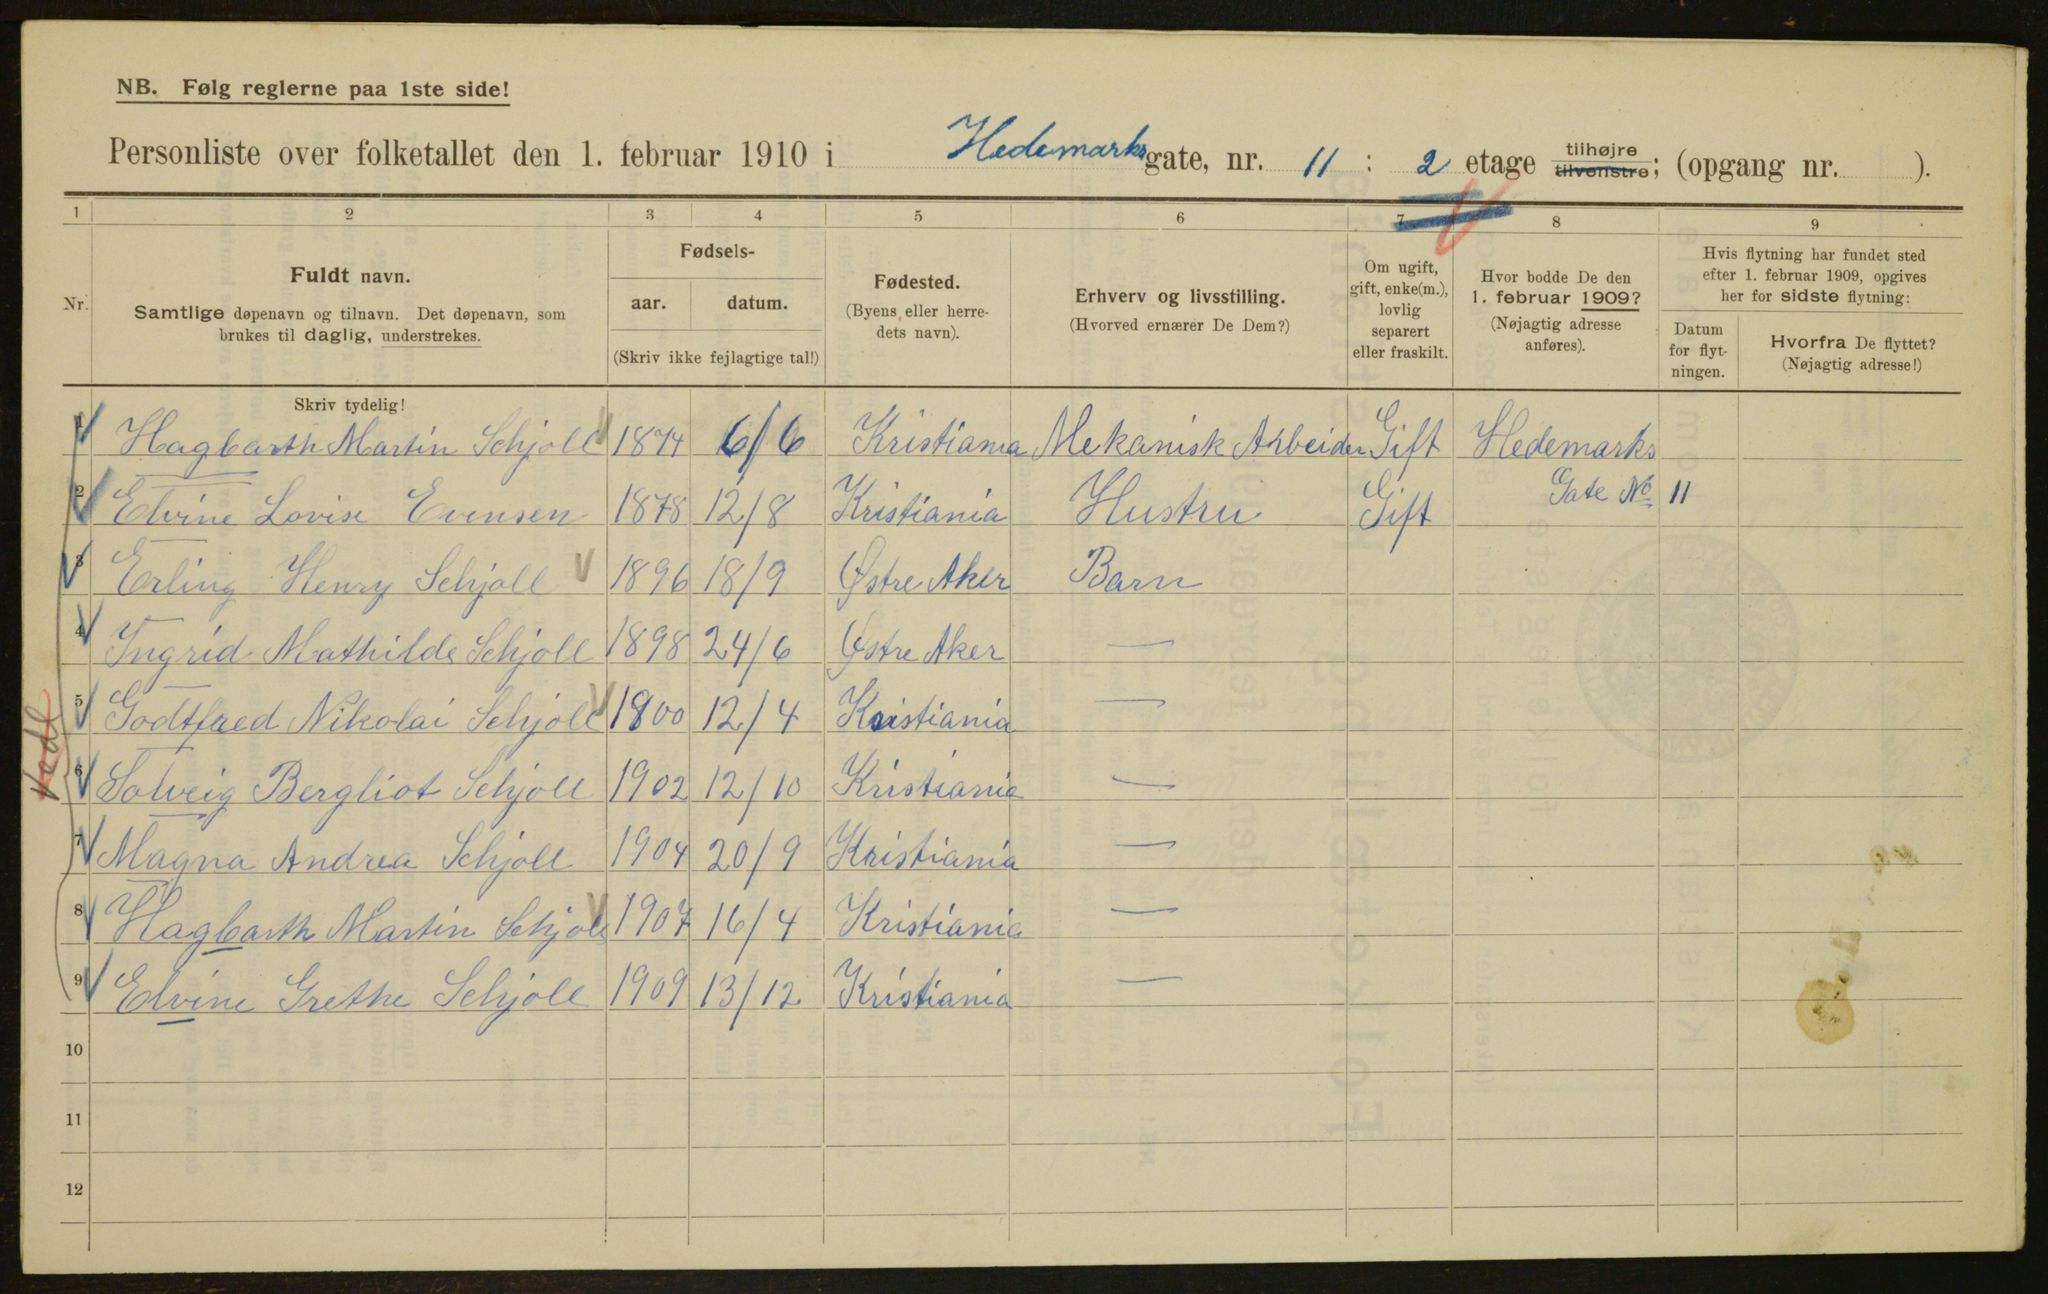 NB. Følg reglerne paa 1ste side!
Personliste over folketallet den 1. februar 1910 i Hedemarks gate, nr. 11 : 2 etage tilhøjre tilvenstre; (opgang nr. ).
1 2 3 4 5 6 7 8 9
Nr.
Fuldt navn.
Samtlige døpenavn og tilnavn. Det døpenavn, som
brukes til daglig, understrekes.
Skriv tydelig!
Fødsels-
aar. datum.
(Skriv ikke fejlagtige tal!)
Fødested.
(Byens eller herre-
dets navn).
Erhverv og livsstilling.
(Hvorved ernærer De Dem?)
Om ugift,
gift, enke(m.),
lovlig
separert
eller fraskilt.
Hvor bodde De den
1. februar 1909?
(Nøjagtig adresse
anføres).
Hvis flytning har fundet sted
efter 1. februar 1909, opgives
her for sidste flytning:
Datum
for flyt-
ningen.
Hvorfra De flyttet?
(Nøjagtig adresse!)
1 Hagbarth Martin Schjoll 1874 6/6 Kristiania Mekanisk Arbeider Gift Hedemarks
2 Elvine Lovise Evensen 1878 12/8 Kristiania Hustru Gift Gate No 11
3 Erling Henry Schjoll 1896 18/9 Østre Aker Barn
4 Yngrid Mathilde Schjoll 1898 24/6 Østre Aker —
5 Godtfred Nikolai Schjoll 1900 12/4 Kristiania —
6 Solveig Bergliot Schjoll 1902 12/10 Kristiania —
7 Magna Andrea Schjoll 1904 20/9 Kristiania —
8 Hagbarth Martin Schjoll 1907 16/4 Kristiania —
9 Edvine Grethe Schjoll 1909 13/12 Kristiania —
10
11
12